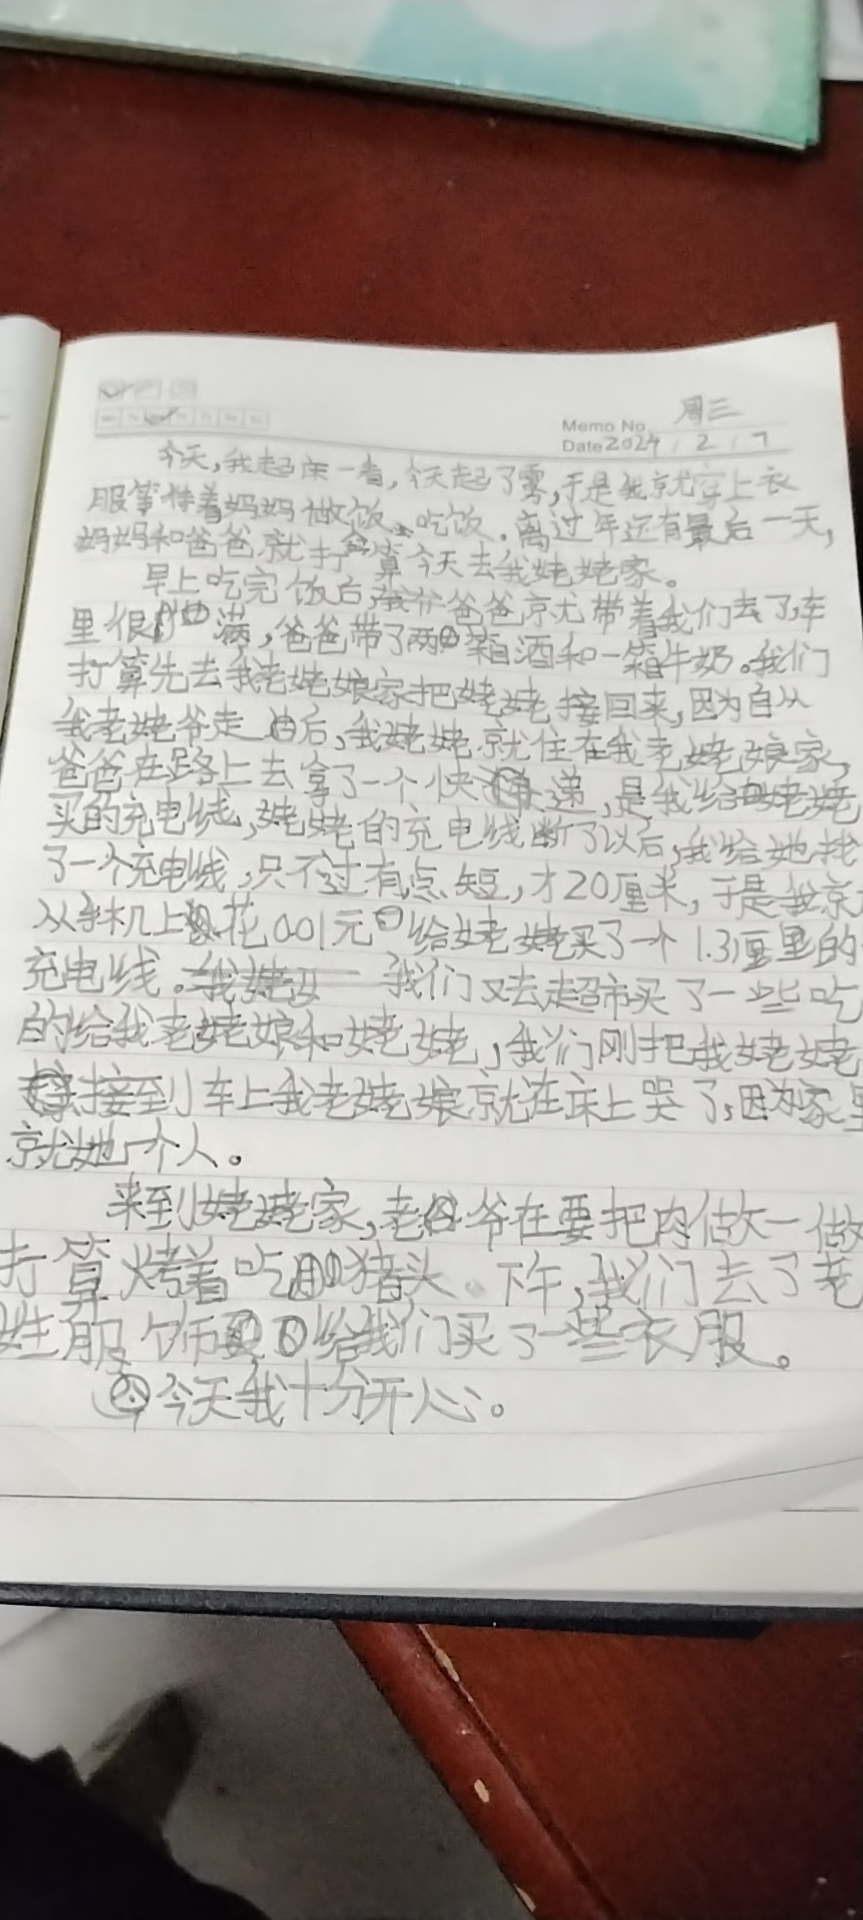 周三
Memo No.
Date 2024 / 2 / 7
今天,我起床一看,今天起了雾,于是我就穿上衣
服等待着妈妈做饭、吃饭。离过年还有最后一天,
妈妈和爸爸就打算今天去我姥姥家。
早上吃完饭后,爸爸就带着我们去了,车
里很满,爸爸带了两箱酒和一箱牛奶。我们
打算先去我老姥娘家把姥姥接回来,因为自从
我老姥爷走后,我姥姥就住在我老姥娘家,
爸爸在路上去拿了一个快递,是我给姥姥
买的充电线,姥姥的充电线断了以后,我给她找
了一个充电线,只不过有点短,才20厘米,于是我京
从手机上花0.01元给姥姥买了一个1.3厘里的
充电线。我们又去超市买了一些吃
的给我老姥娘和姥姥,我们刚把我姥姥
接到车上我老姥娘就在床上哭了,因为家里
就她一个人。
来到姥姥家,老爷在要把肉做一做
打算烤着吃猪头。下午,我们去了老
姓服饰给我们买了一些衣服。
今天我十分开心。